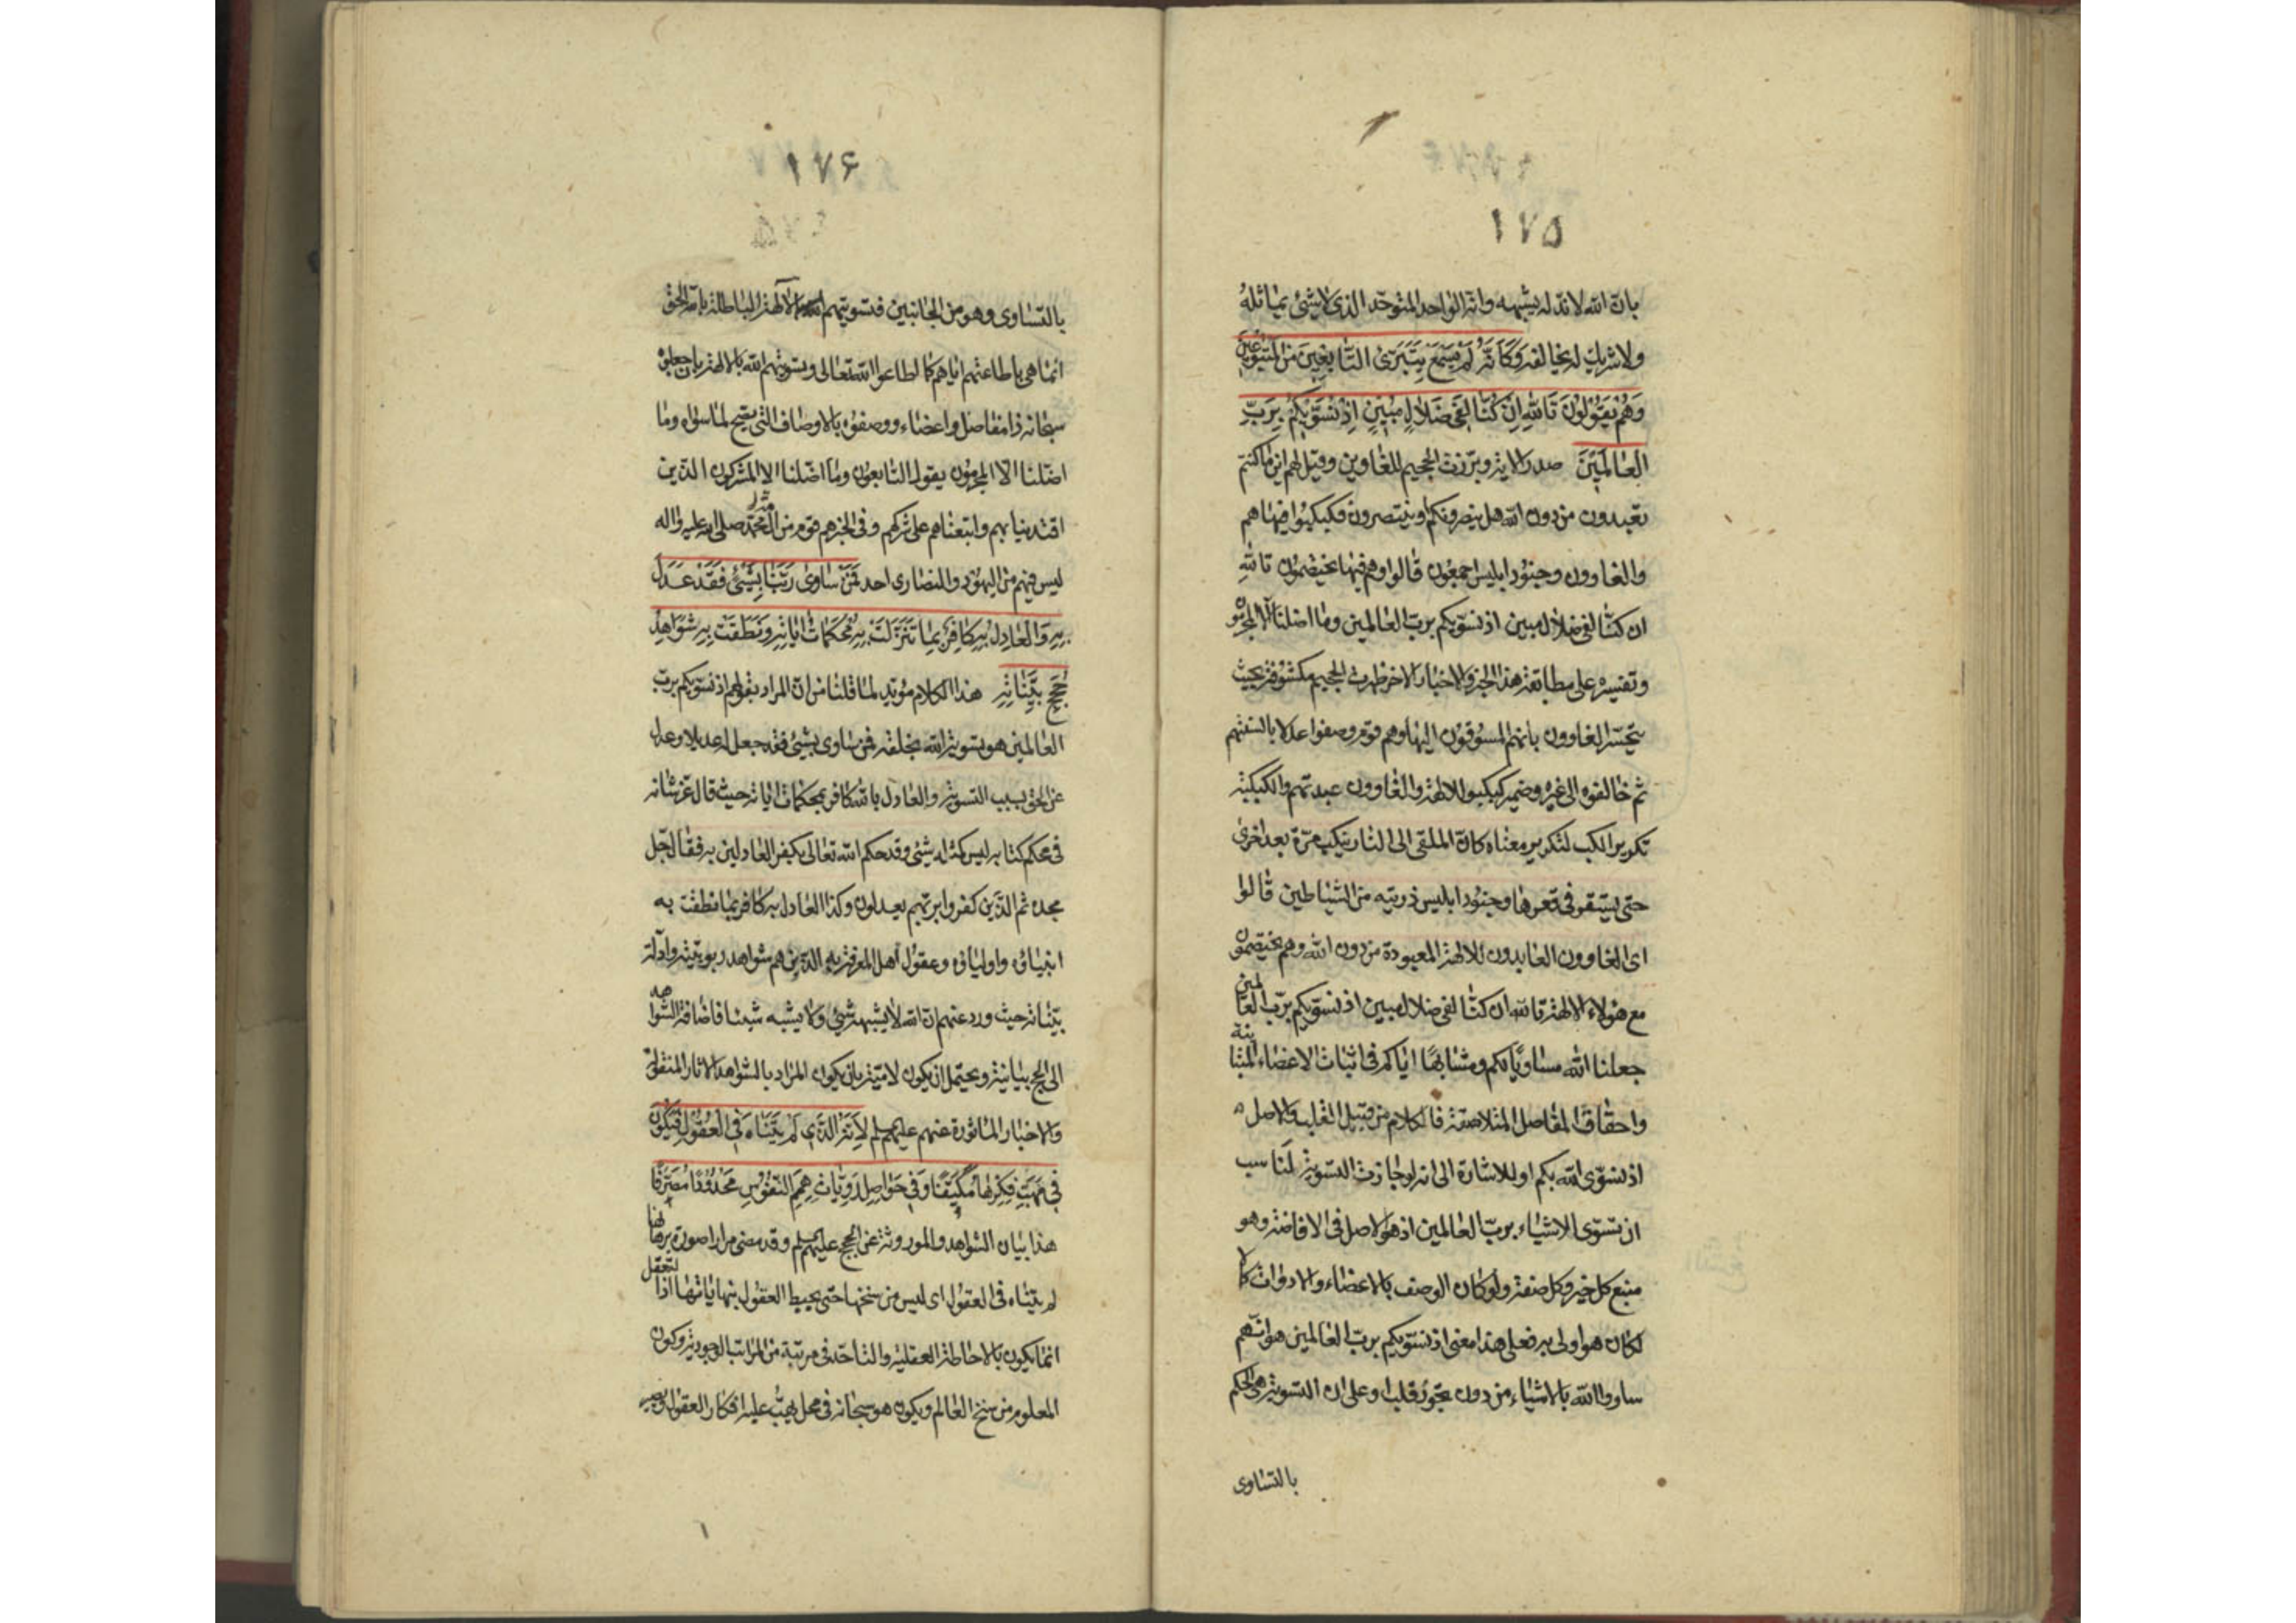 ١٧۵
بان الله لا ند له يشبهه وانه الواحد المتوحد الذى لا شئ يماثله
ولا شريك له يخالفه وَكَاَنَّهُ لَمْ يَسْمَعْ بِتَبَرِّىْ التَّابِعِينَ مِنَ المَتْبُوعِينَ
وَهُمْ يَقُولُونَ تَاللهِ اِنْ كُنَّا لَفِى ضَلَالٍ مُبِينٍ اِذْ نُسَوِّيكُمْ بِرَبِّ
العَالَمِينَ صدر الاية وبرزت الجحيم للغاوين وقيل لهم اين ما كنتم
تعبدون من دون الله هل ينصرونكم او ينتصرون فكبكبوا فيها هم
والغاوون وجنود ابليس اجمعون قالوا وهم فيها يختصمون تالله
ان كنا لفى ضلال مبين اذ نسويكم برب العالمين وما اضلنا الا المجرمون
وتفسيره على مطابقة هذا الخبر والاخبار الاخر ظهرت الجحيم مكشوفة بحيث
يتحسر الغاوون بانهم المسوقون اليها وهم قوم وصفوا عدلا بالسنتهم
ثم خالفوه الى غيره وضمير كبكبوا للالهة والغاوون عبدتهم والكبكبة
تكرير الكب لتكرير معناه كان الملقى الى النار ينكب مرة بعد اخرى
حتى يستقر فى قعرها وجنود ابليس ذريته من الشياطين قالوا
اى الغاوون العابدون للالهة المعبودة من دون الله وهم يختصمون
مع هؤلاء الالهة تالله ان كنا لفى ضلال مبين اذ نسويكم برب العالمين
جعلنا الله مساويا لكم ومشابها اياكم فى اثبات الاعضاء المتباينة
واحقاق المفاصل المتلاصقة فالكلام من قبيل القلب والاصل
اذ نسوى الله بكم او للاشارة الى انه لو جازت التسوية لناسب
ان تسوى الاشياء برب العالمين اذ هو الاصل فى الافاضة وهو
منبع كل خير وكل صفة ولو كان الوصف بالاعضاء والادوات كمالا
لكان هو اولى به فعلى هذا معنى اذ نسويكم برب العالمين هو انهم
ساووا الله بالاشياء من دون تجوز قلب وعلى ان التسوية هى الحكم
بالتساوى
١٧۶
بالتساوى وهو من الجانبين فتسويتهم الالهة الباطلة بالله الحق
انما هى باطاعتهم اياهم كما اطاعوا الله تعالى وتسويتهم الله بالالهة بان جعلوه
سبحانه ذا مفاصل واعضاء ووصفوه بالاوصاف التى يصح لما سواه وما
اضلنا الا المجرمون يقول التابعون وما اضلنا الا المشركون الذين
اقتدينا بهم واتبعناهم على شركهم وفى الخبر هم قوم من امة محمد صلى الله عليه واله
ليس فيهم من اليهود والنصارى احد فَمَنْ سَاوىٰ رَبَّنَا بِشَئٍ فَقَدْ عَدَلَ
بِهِ وَالعَادِلُ بِهِ كَافِرٌ بِمَا تَنَزَّلَتْ بِهِ مُحْكَمَاتُ ايَاتِهِ وَنَطَقَتْ بِهِ شَوَاهِدُ
حُجَجِ بَيِّنَاتِهِ هذا الكلام مؤيد لما قلنا من ان المراد بقولهم اذ نسويكم برب
العالمين هو تسوية الله بخلقه فمن ساوى بشئ فقد جعل له عديلا وعدل
عن الحق بسبب التسوية والعادل بالله كافر بمحكمات اياته حيث قال عز شانه
فى محكم كتابه ليس كمثله شئ وقد حكم الله تعالى بكفر العادلين به فقال جل
مجده ثم الذين كفروا بربهم يعدلون وكذا العادل به كافر بما نطقت به
انبياؤه واولياؤه وعقول اهل المعرفة به الذين هم شواهد ربوبيته وادلة
بيناته حيث ورد عنهم ان الله لا يشبهه شئ ولا يشبه شيئا فاضافة الشواهد
الى الحجج بيانية ويحتمل ان يكون لامية بان يكون المراد بالشواهد الاثار المنقولة
والاخبار الماثورة عنهم عليهم السلم لِاَنَّهُ الَّذِى لَمْ يَتَنَاهَ فِى العُقُولِ فَيَكُونَ
فِى مَهَبِّ فِكْرِهَا مُكَيَّفًا وَفِى حَوَاصِلِ رَوِيَّاتِ هِمَمِ النُّفُوسِ مَحْدُودًا مُصَرَّفًا
هذا بيان الشواهد والموروثة عن الحجج عليهم السلم وقد مضى مرارا صورة برهانها
لم يتناه فى العقول اى ليس من سنخها حتى يحيط العقول بنهاياتها اذ التعقل
انما يكون بالاحاطة العقلية والتاحد فى مرتبة من المراتب الوجودية وكون
المعلوم من سنخ العالم ويكون هو سبحانه فى محل يهب عليه افكار العقول ويصير